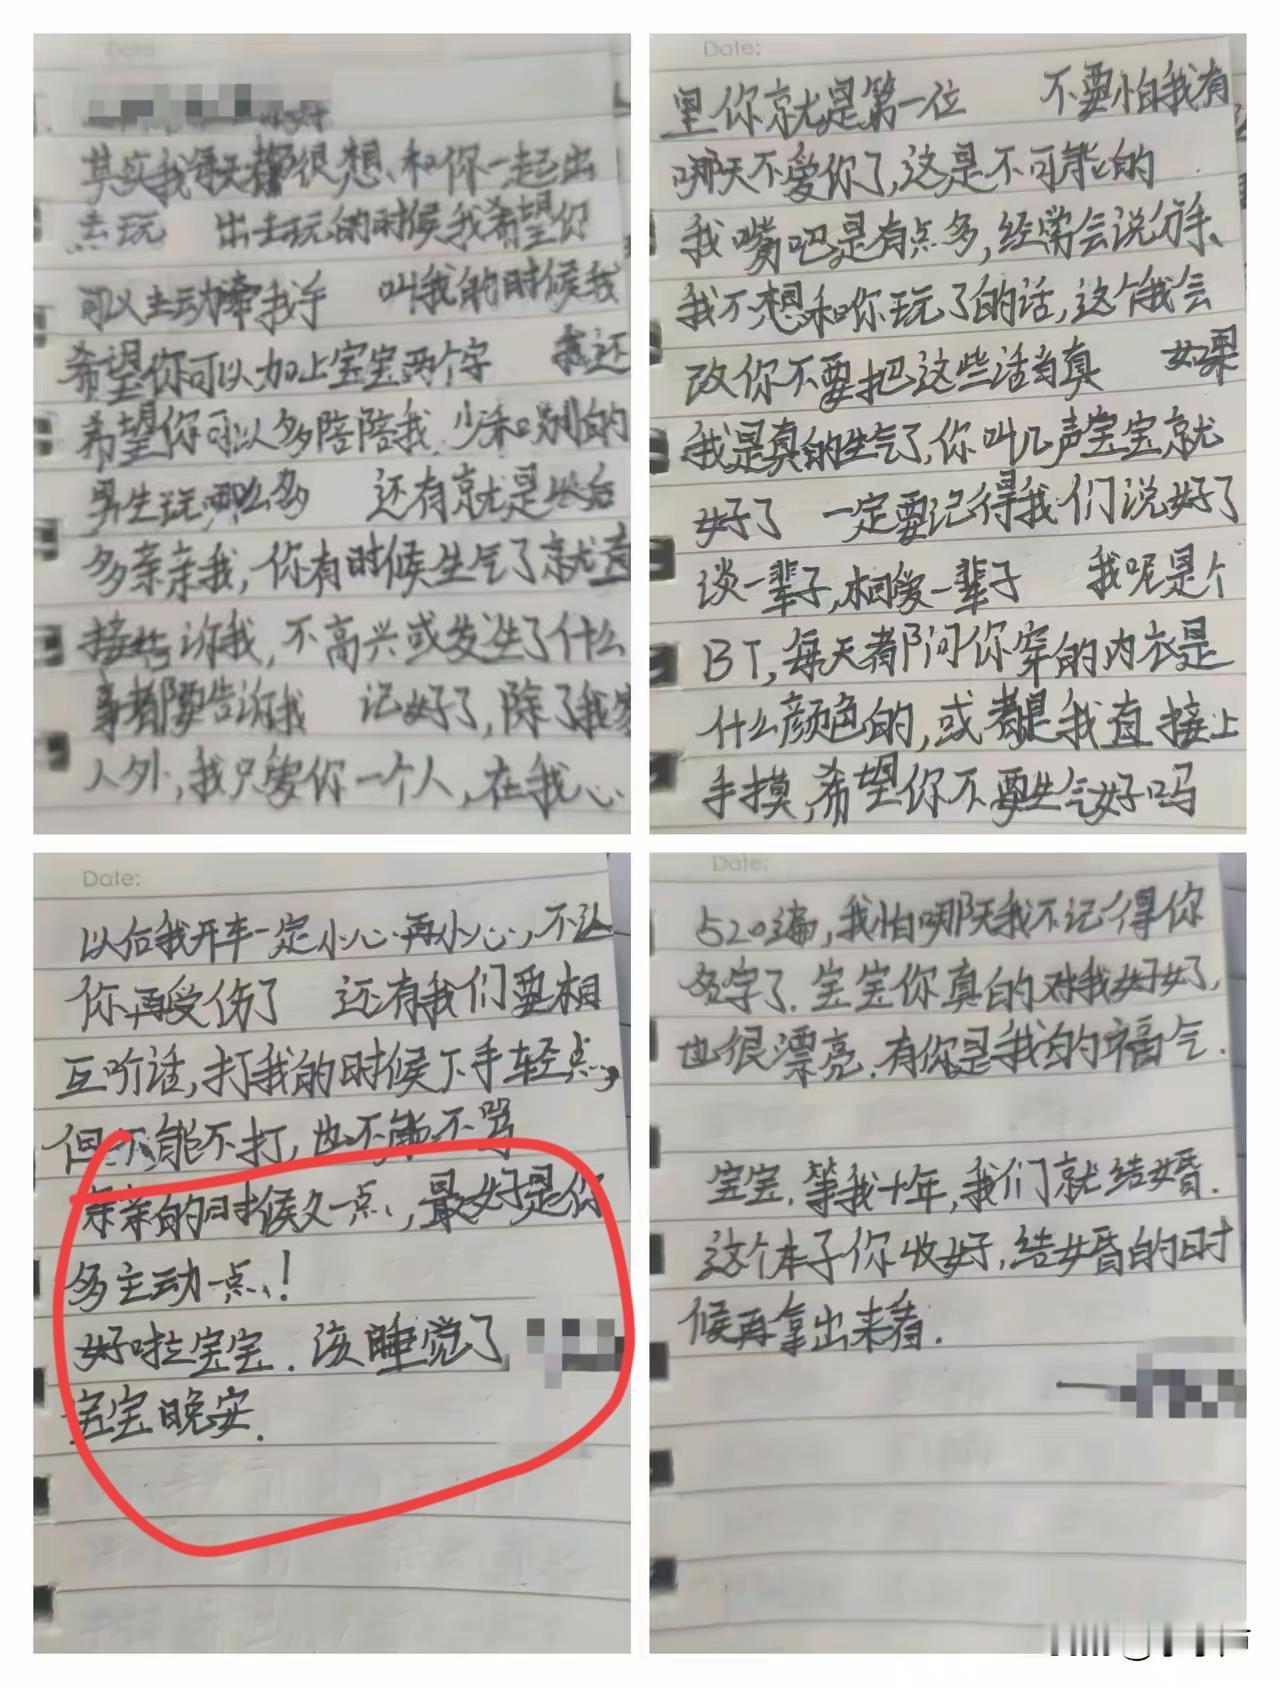 Date:
其实我每天都很想和你一起出
去玩 出去玩的时候我希望你
可以主动牵我手 叫我的时候我
希望你可以加上宝宝两个字 我还
希望你可以多陪陪我.少和别的
男生玩那么多 还有就是以后
多亲亲我,你有时候生气了就直
接告诉我,不高兴或发生了什么
事都要告诉我 记好了,除了我家
人外,我只爱你一个人,在我心
Date:
里你就是第一位 不要怕我有
哪天不爱你了,这是不可能的
我嘴吧是有点多,经常会说分手、
我不想和你玩了的话,这个我会
改你不要把这些话当真 如果
我是真的生气了,你叫几声宝宝就
好了 一定要记得我们说好了
谈一辈子,相爱一辈子 我呢是个
BT,每天都问你穿的内衣是
什么颜色的,或者是我直接上
手摸,希望你不要生气好吗
Date:
以后我开车一定小心再小心,不让
你再受伤了 还有我们要相
互听话,打我的时候下手轻点,
但不能不打,也不能不骂
亲亲的时候久一点,最好是你
多主动一点!
好啦宝宝.该睡觉了
宝宝晚安.
Date:
520遍,我怕哪天我不记得你
名字了.宝宝你真的对我好好,
也很漂亮.有你是我的福气.
宝宝.等我十年,我们就结婚.
这个本子你收好,结婚的时
候再拿出来看.